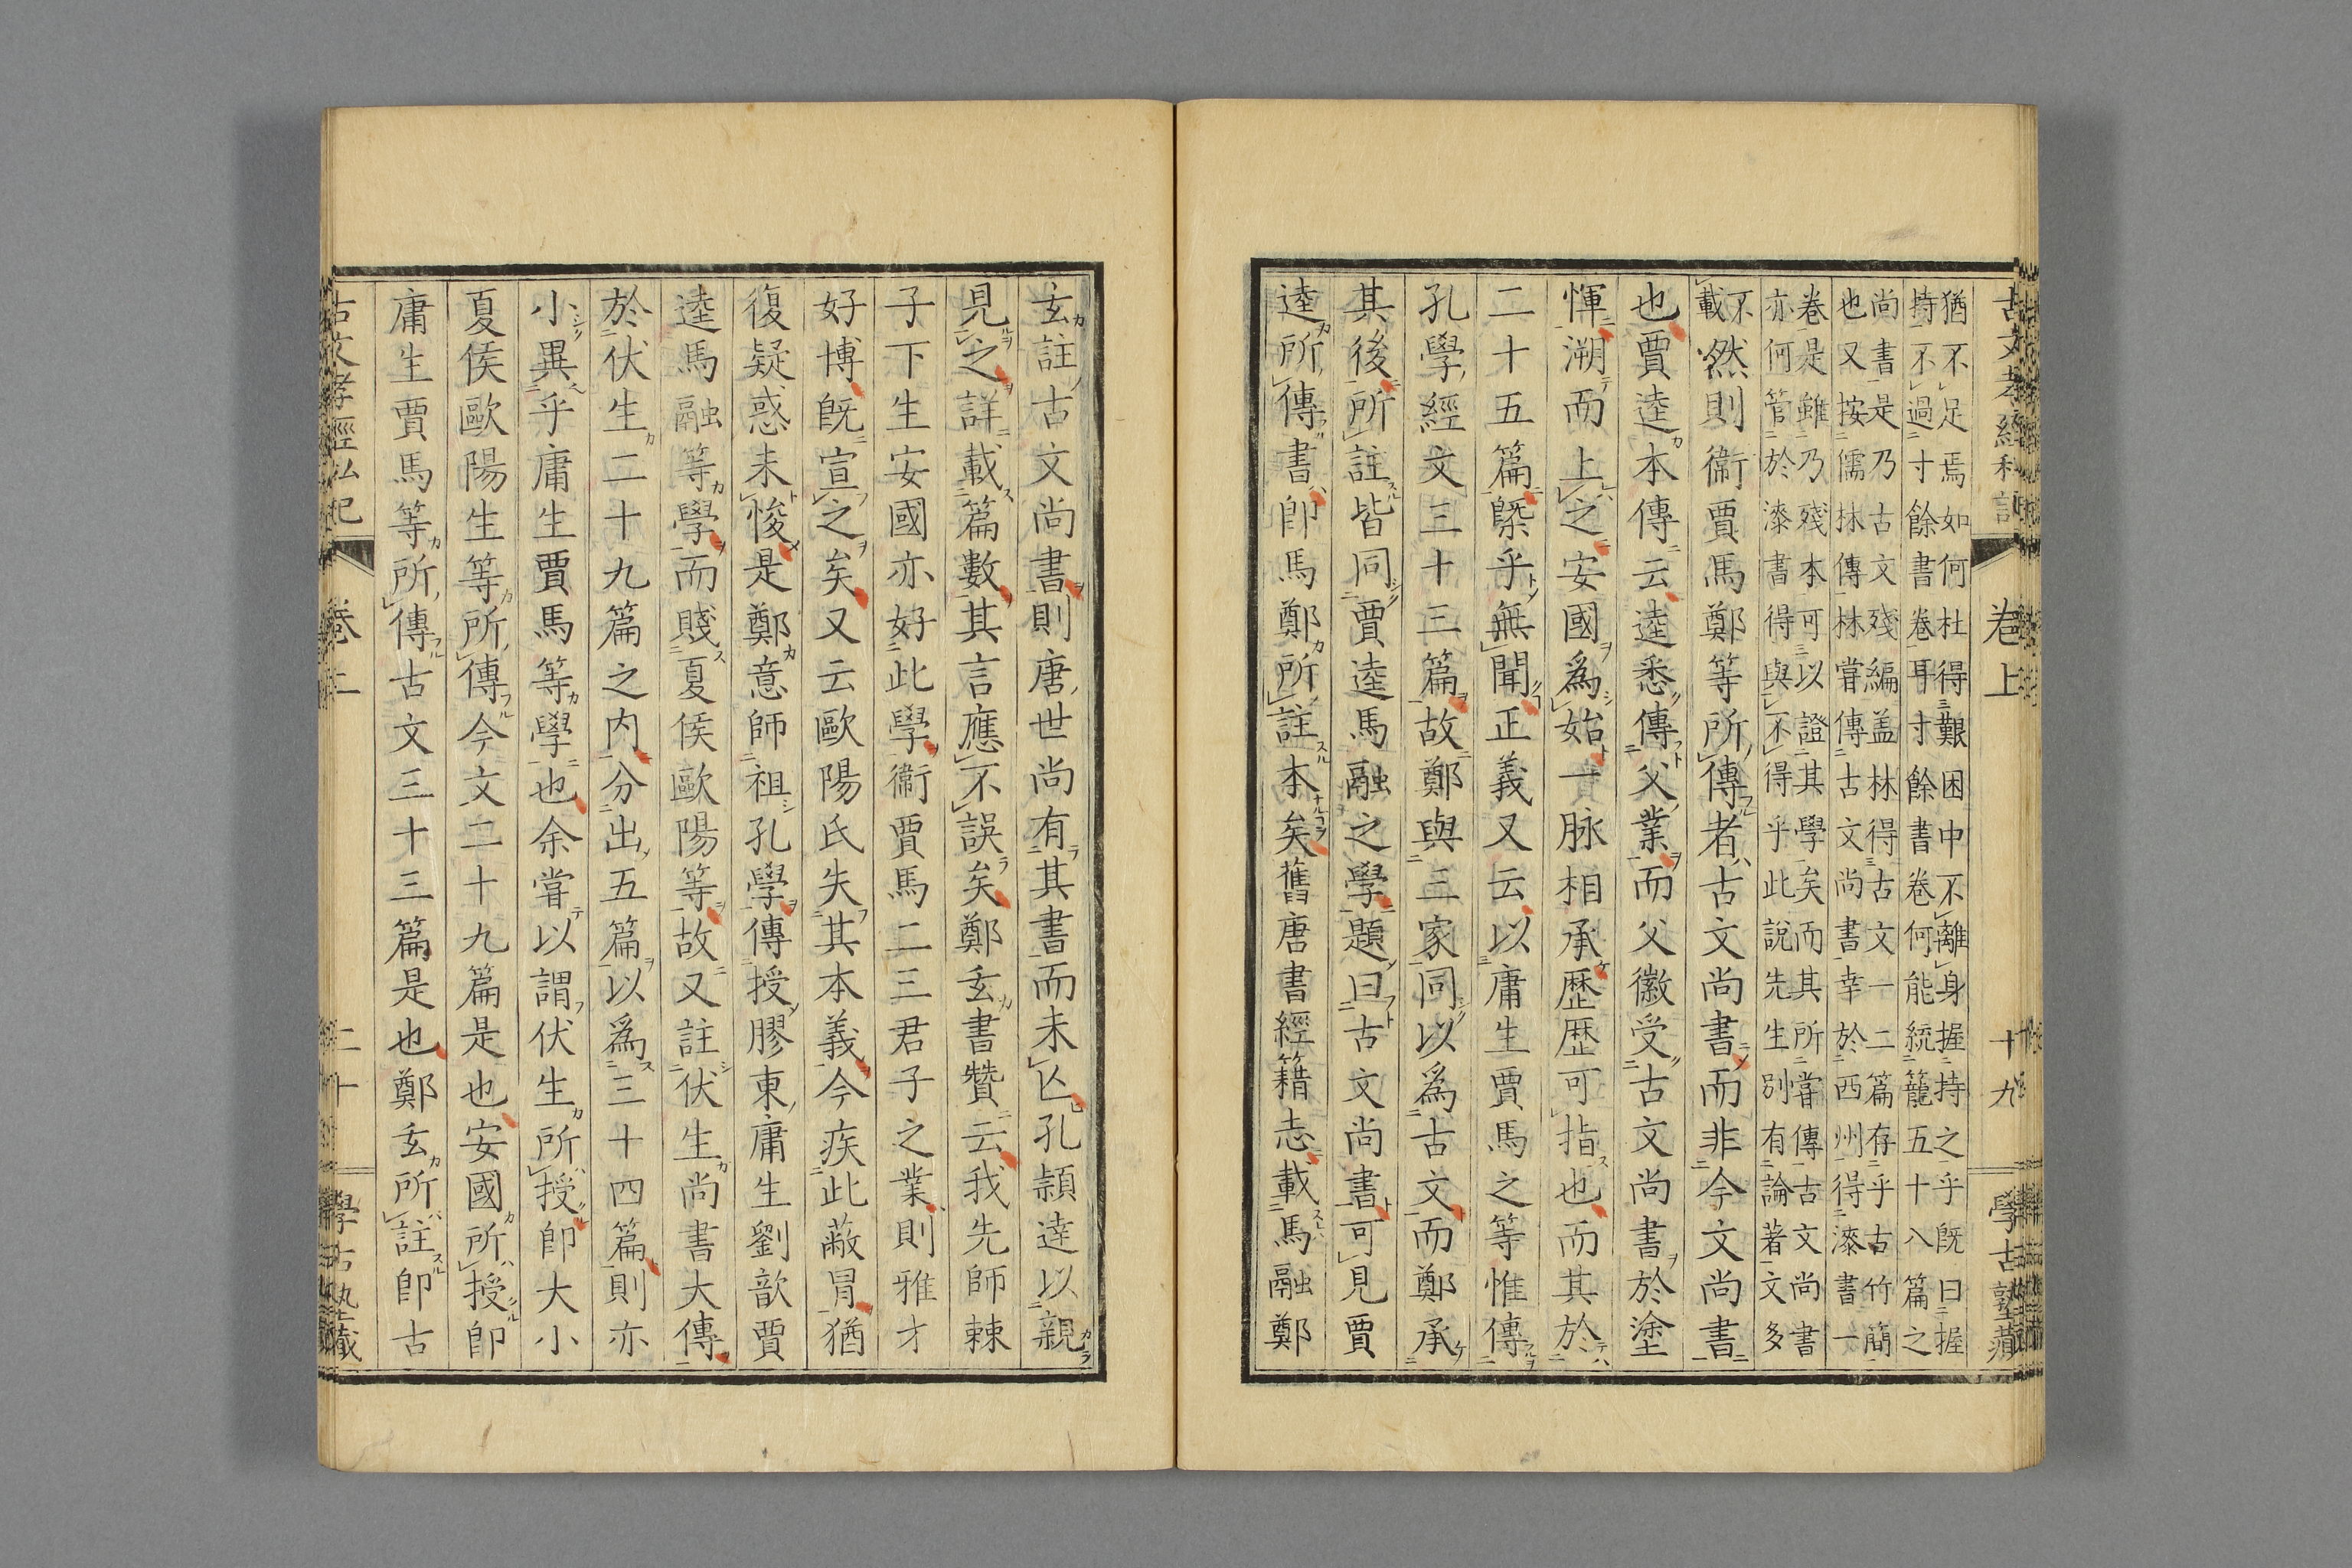 古文孝經私記
卷上
十九
學古塾藏
猶不足焉如何杜得艱困中不離身握持之乎既曰握
持不過寸餘書卷耳寸餘書卷何能統籠五十八篇之
尚書是乃古文殘編盖林得古文一二篇存乎古竹簡
也又按儒林傳林嘗傳古文尚書幸於西州得漆書一
卷是雖乃殘本可以證其學矣而其所嘗傳古文尚書
亦何管於漆書得與不得乎此說先生別有論著文多
不載
然則衞賈馬鄭等所傳者古文尚書而非今文尚書
也賈逵本傳云逵悉傳父業而父徽受古文尚書於塗
惲溯而上之安國爲始一脉相承歷歷可指也而其於
二十五篇槩乎無聞正義又云以庸生賈馬之等惟傳
孔學經文三十三篇故鄭與三家同以爲古文而鄭承
其後所註皆同賈逵馬融之學題曰古文尚書可見賈
逵所傳書卽馬鄭所註本矣舊唐書經籍志載馬融鄭
玄註古文尚書則唐世尚有其書而未亾孔頴達以親
見之詳載篇數其言應不誤矣鄭玄書贊云我先師棘
子下生安國亦好此學衞賈馬二三君子之業則雅才
好博既宣之矣又云歐陽氏失其本義今疾此蔽冐猶
復疑惑未悛是鄭意師祖孔學傳授膠東庸生劉歆賈
逵馬融等學而賤夏侯歐陽等故又註伏生尚書大傳
於伏生二十九篇之内分出五篇以爲三十四篇則亦
小異乎庸生賈馬等學也余嘗以謂伏生所授卽大小
夏侯歐陽生等所傳今文二十九篇是也安國所授卽
庸生賈馬等所傳古文三十三篇是也鄭玄所註卽古
古文孝經私記
卷上
二十
學古塾藏